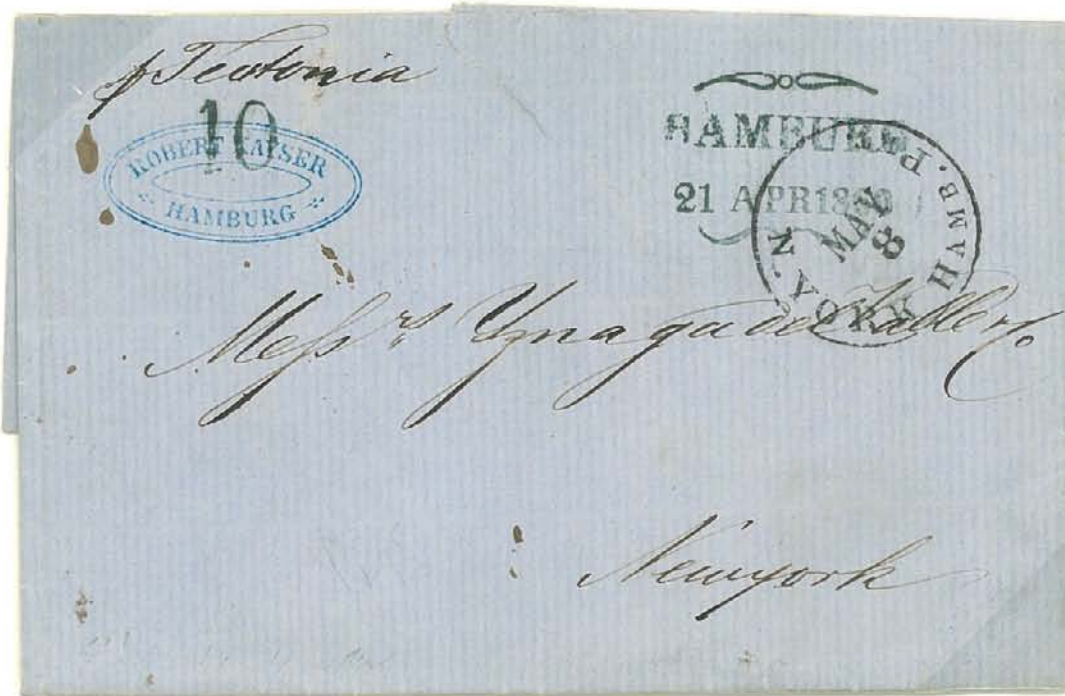 p Teutonia
10
ROBERT KAYSER
HAMBURG
HAMBURG
21 APR 18
N. YORK HAMB. P.
MAY
8
Messrs Ynaga del Valle & Co
Newyork